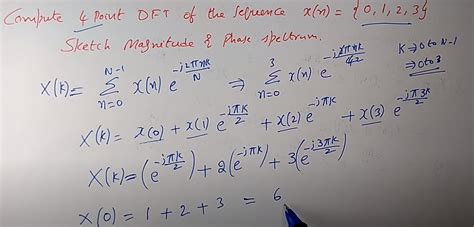 Compute 4 Point DFT of the Sequence x(n) = {0, 1, 2, 3}
Sketch Magnitude & Phase spectrum.
X(k) = N-1 ∑ n=0 x(n) e^(-j2πnk/N) ⇒ 3 ∑ n=0 x(n) e^(-j2πnk/42) K → 0 to N-1
→ 0 to 3
X(k) = x(0) + x(1) e^(-jπk/2) + x(2) e^(-jπk) + x(3) e^(-jπ3k/2)
X(k) = (e^(-jπk/2)) + 2(e^(-jπk)) + 3(e^(-j3πk/2))
X(0) = 1 + 2 + 3 = 6